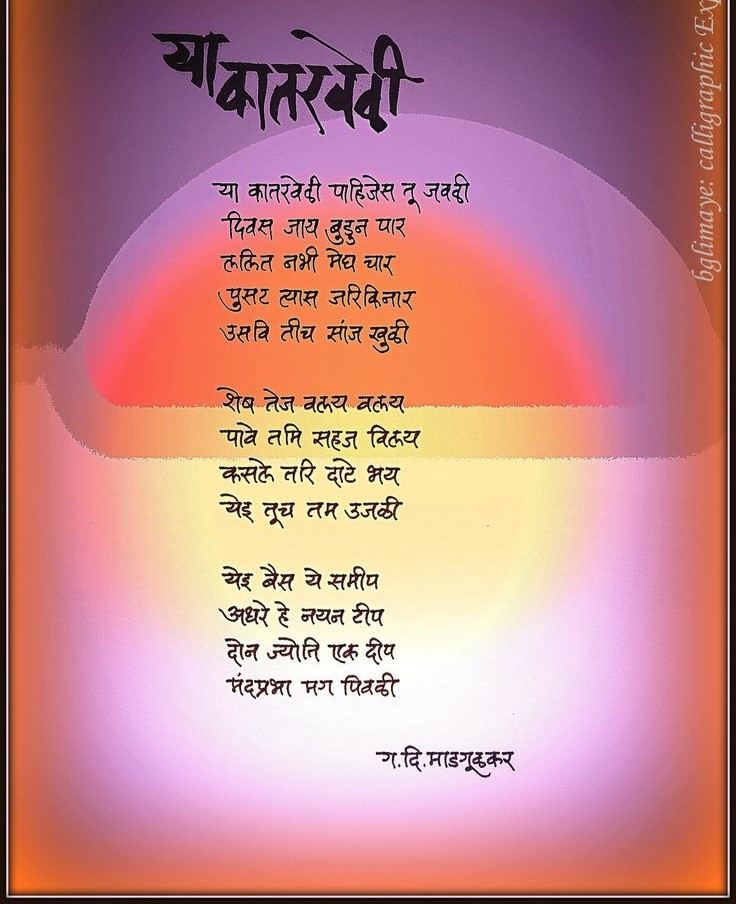 या
कातरवेळी
या कातरवेळी पाहिजेस तू जवळी
दिवस जाय बुडुन पार
ललित नभी मेघ चार
पुसट त्यास जरिकिनार
उसवि तीच सांज खुळी
शेष तेज वलय वलय
पावे तमि सहज विलय
कसले तरि दाटे भय
येइ तूच तम उजळी
येइ बैस ये समीप
अधरे हे नयन टीप
दोन ज्योति एक दीप
मंदप्रभा मग पिवळी
ग.दि.माडगूळकर
bglimaye: calligraphic Exp